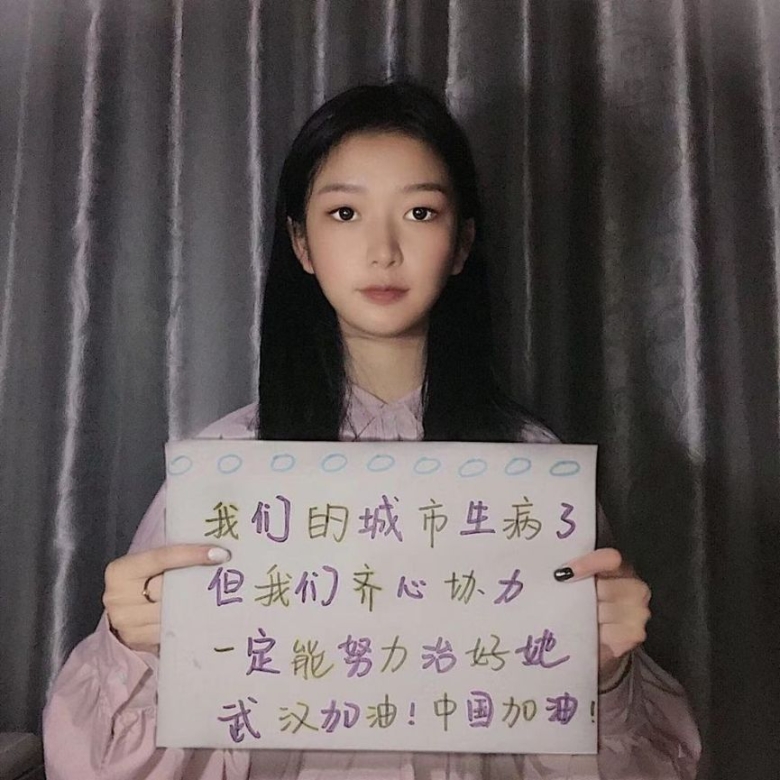 我们的城市生病了
但我们齐心协力
一定能努力治好她
武汉加油!中国加油!